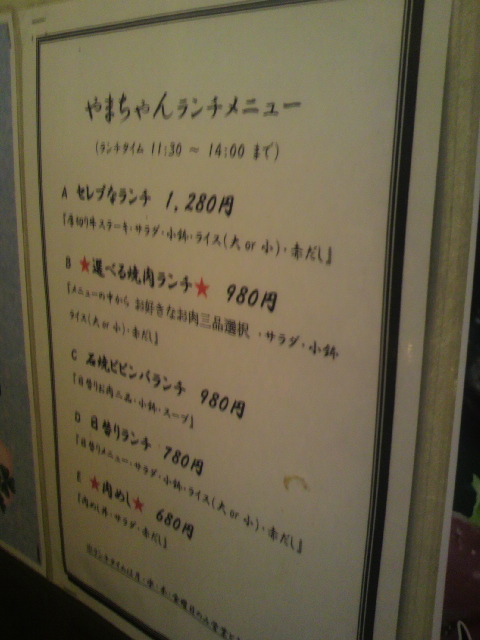 やまちゃんランチメニュー
(ランチタイム 11:30 ~ 14:00 まで)
A セレブなランチ 1,280円
『厚切り牛ステーキ・サラダ・小鉢・ライス(大or小)・赤だし』
B ★選べる焼肉ランチ★ 980円
『メニューの中から お好きなお肉三品選択 ・サラダ・小鉢
ライス(大or小)・赤だし』
C 石焼ビビンバランチ 980円
『日替りお肉二品・小鉢・スープ』
D 日替りランチ 780円
『日替りメニュー・サラダ・小鉢・ライス(大or小)・赤だし』
E ★肉めし★ 680円
『肉めし丼・サラダ・赤だし』
ランチタイムは月・水・木・金曜日のみ営業